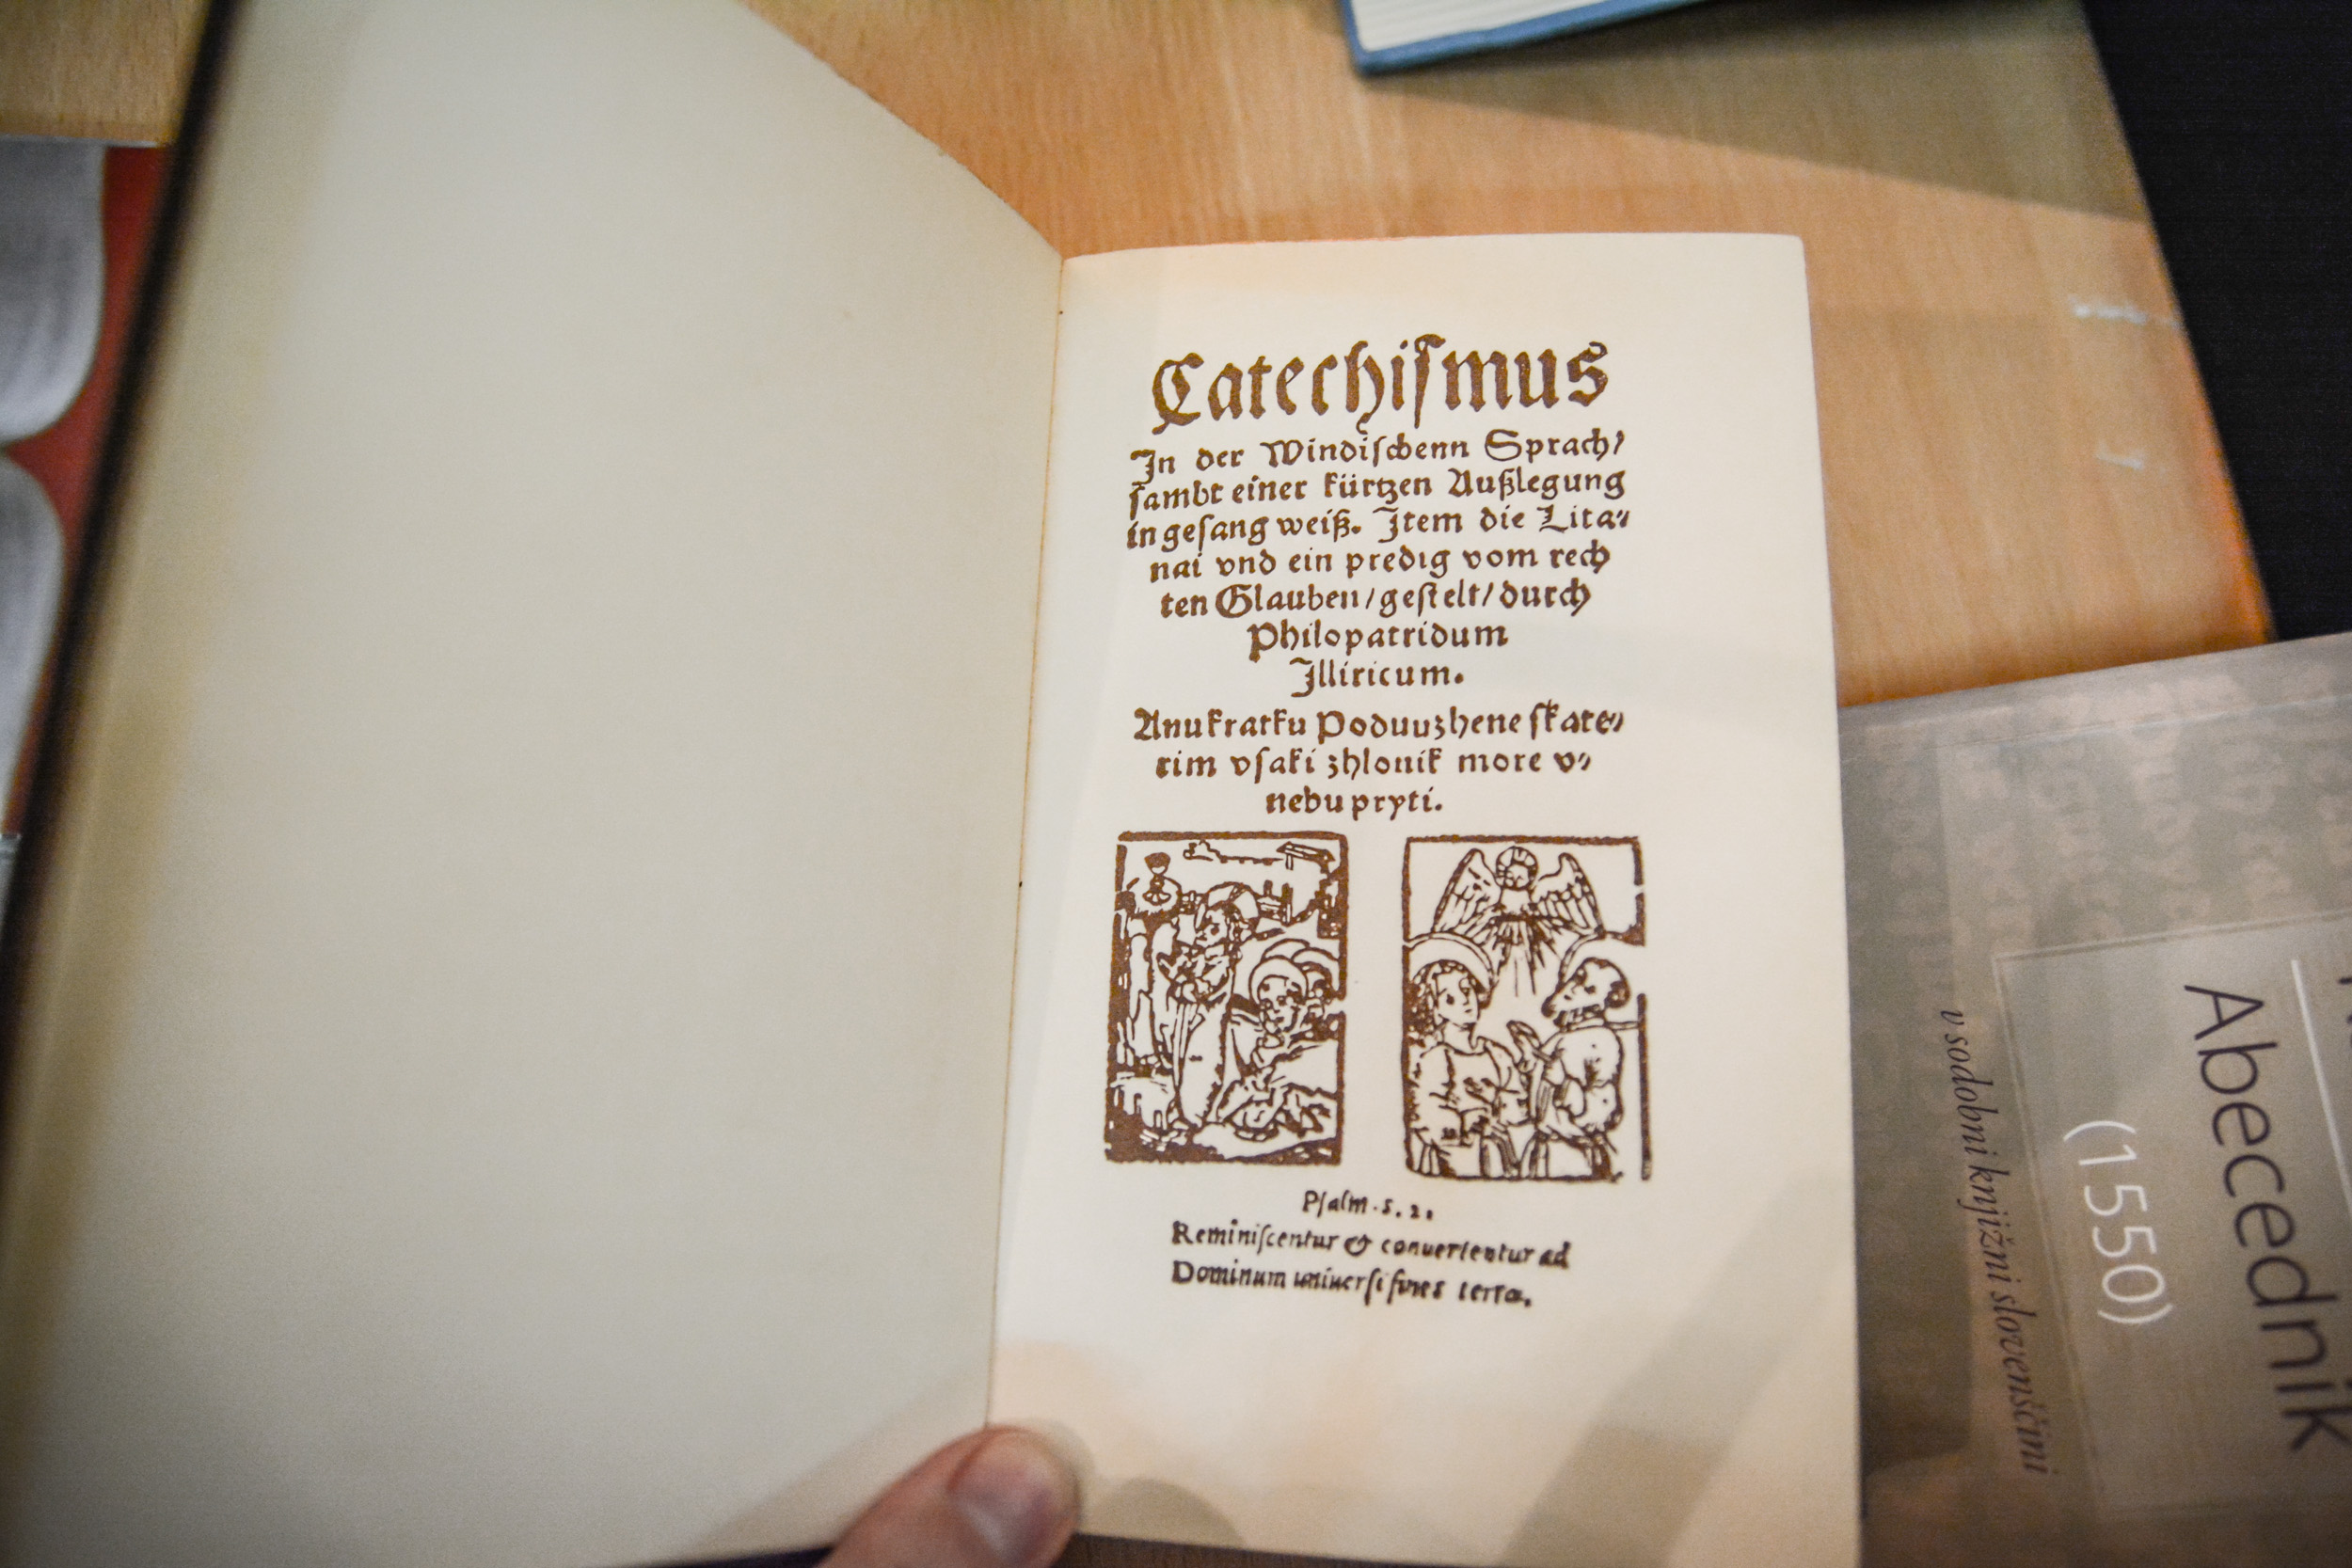 Catechiſmus
In der Windiſchenn Sprach/
ſambt einer kürtzen Außlegung
in geſang weiß. Item die Lita⸗
nai vnd ein predig vom rech
ten Glauben/geſtelt/durch
Philopatridum
Illiricum.
Anukratku Poduuzhene ſkate⸗
rim vſaki zhlouik more v⸗
nebu pryti.
Pſalm. 5. 2.
Reminiſcentur & conuertentur ad
Dominum uniuerſi fines terræ.
Abecednik
(1550)
v sodobni knjižni slovenščini